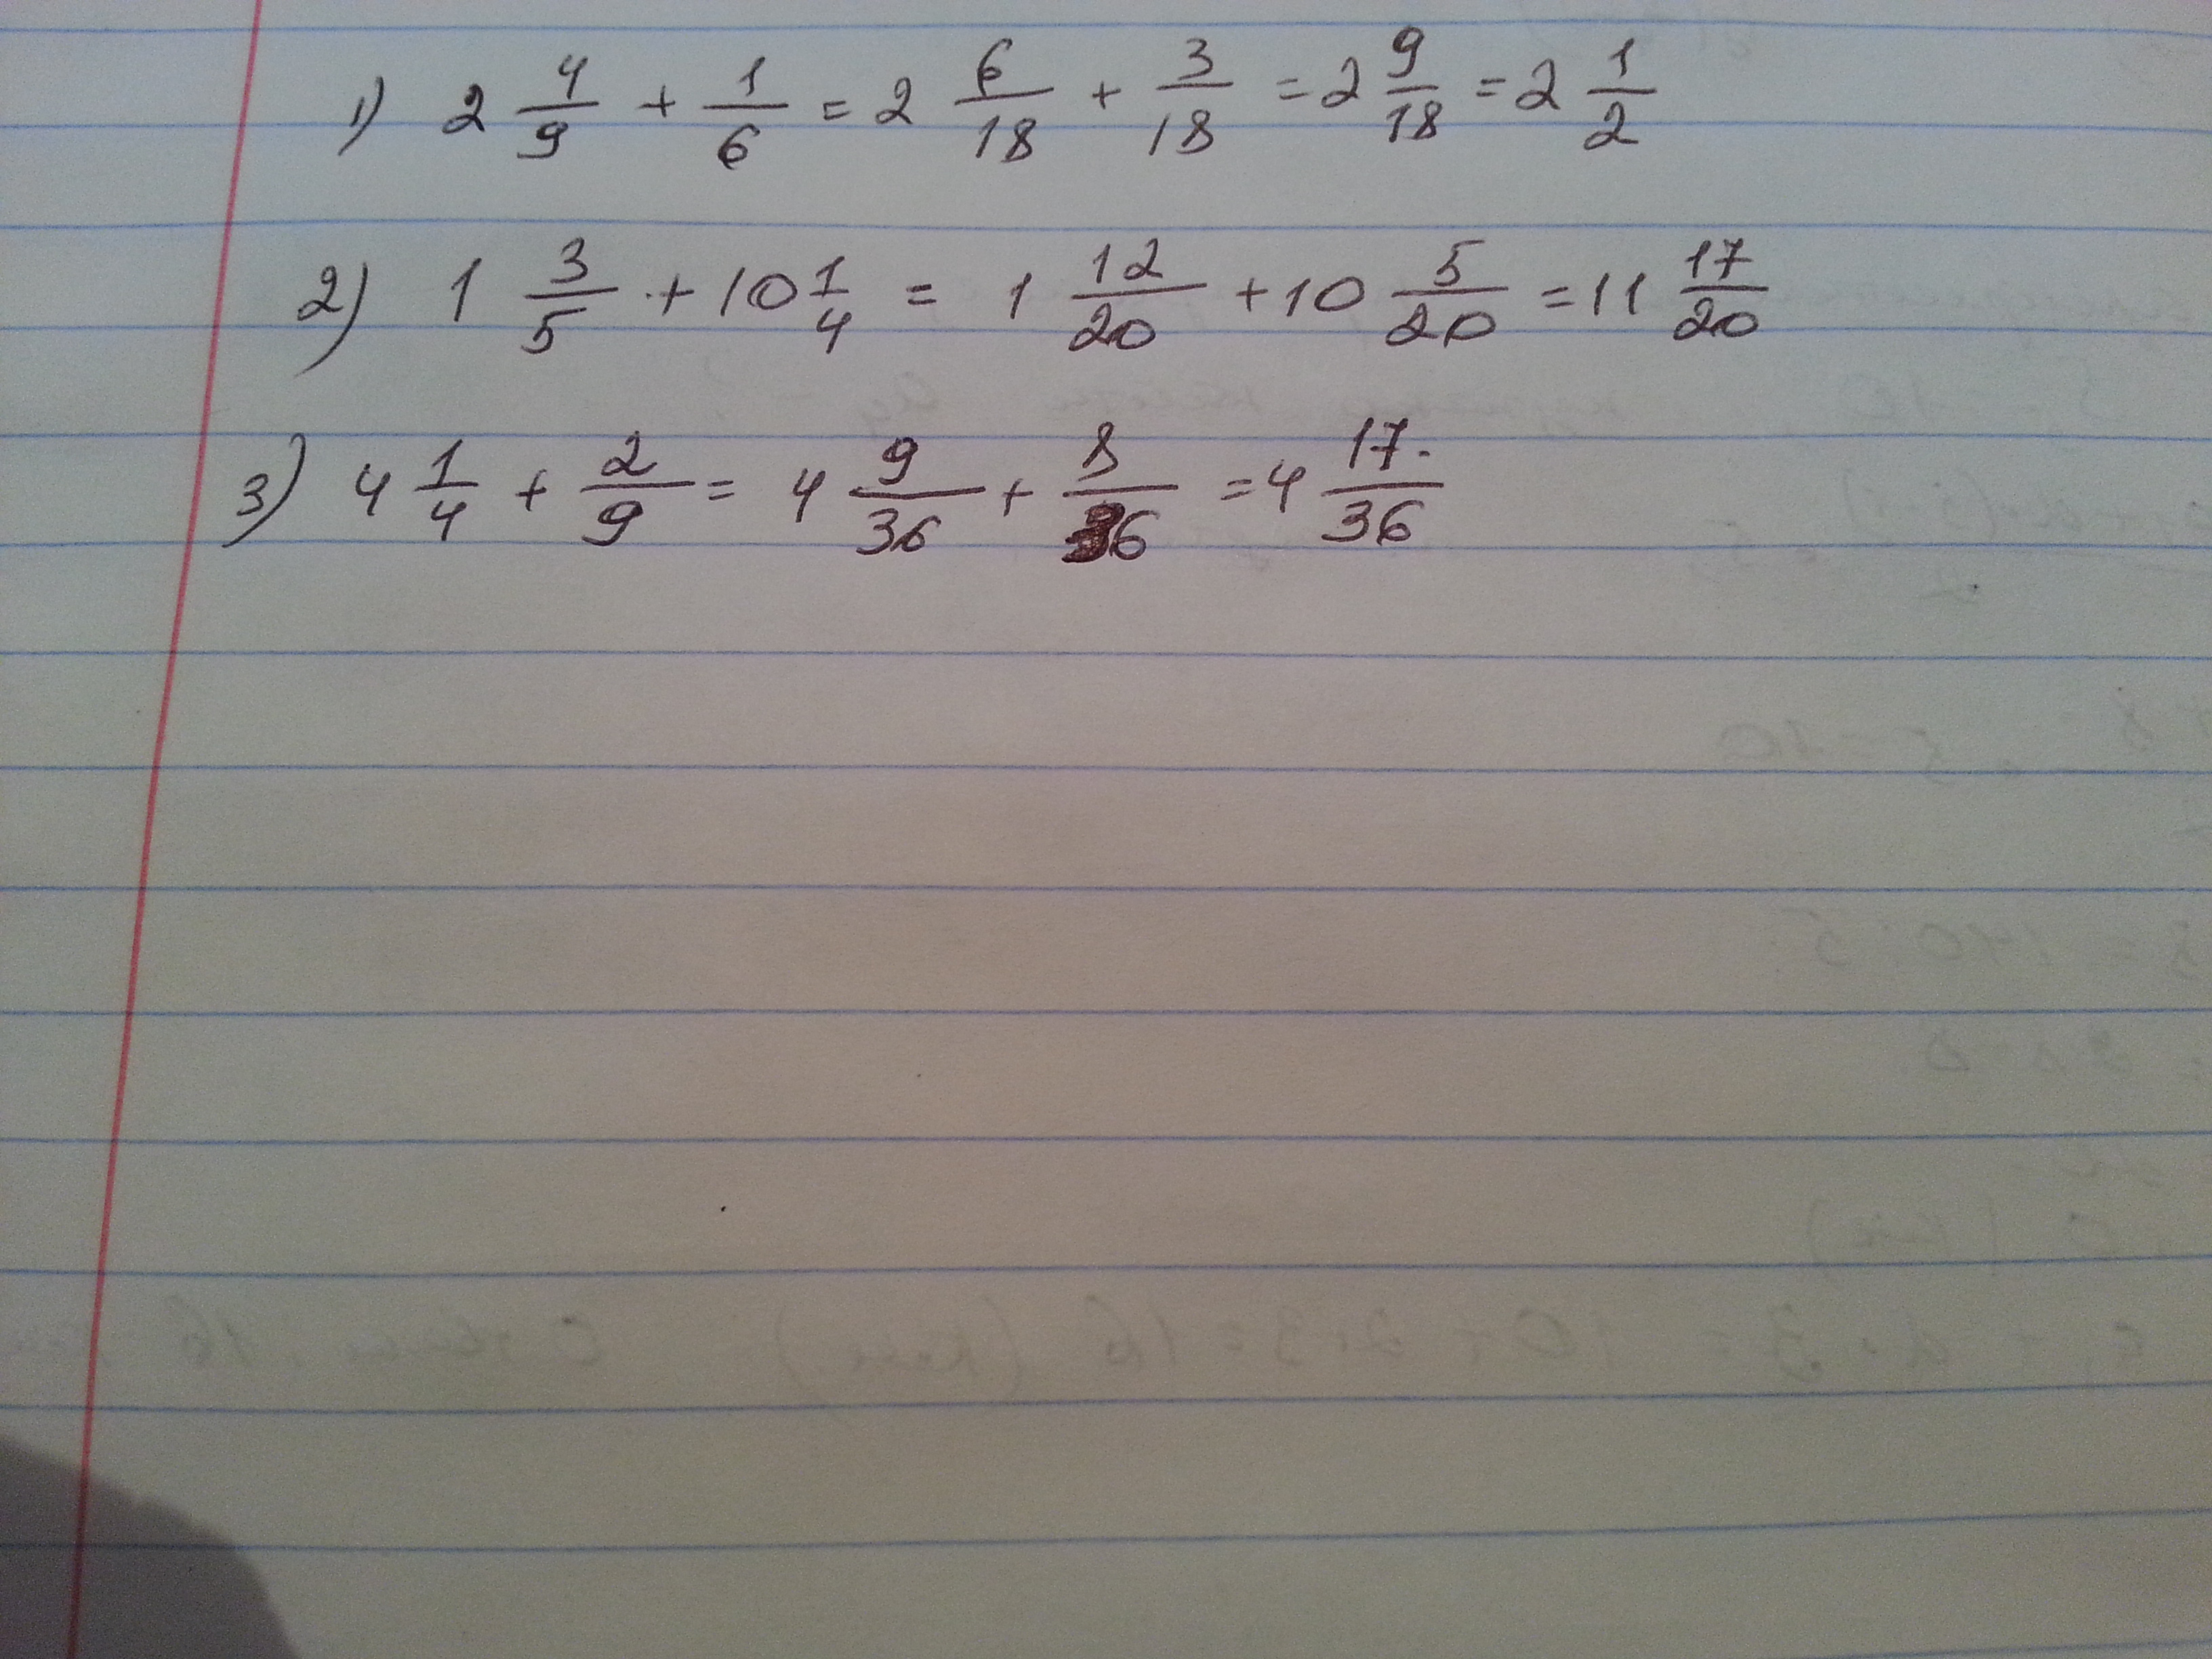 1) 2 4/9 + 1/6 = 2 6/18 + 3/18 = 2 9/18 = 2 1/2
2) 1 3/5 + 10 1/4 = 1 12/20 + 10 5/20 = 11 17/20
3) 4 1/4 + 2/9 = 4 9/36 + 8/36 = 4 17/36